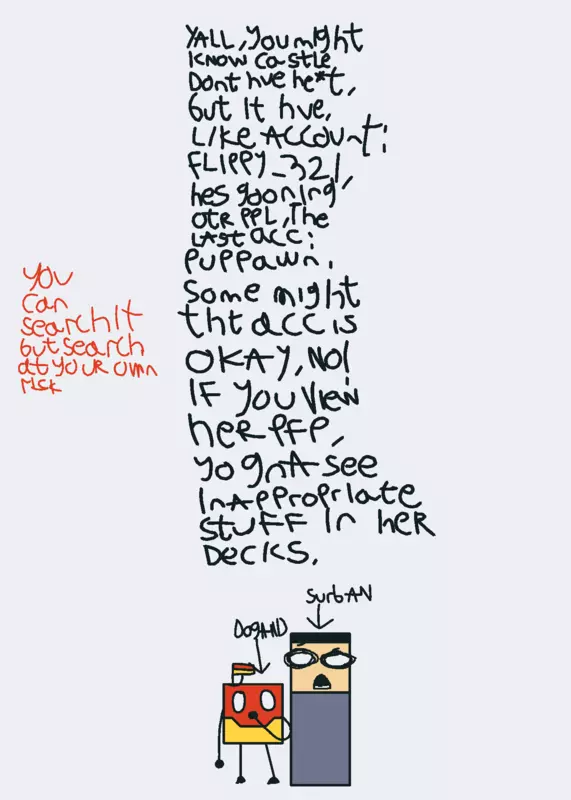 YALL, you might
know castle
Dont hve he*t,
but it hve,
Like Account:
FLIPPY_321,
hes gooning
otr ppl, The
Last acc:
puppawn.
Some might
tht acc is
OKAY, NO!
IF you view
her PFP,
yo gna see
InAppropriate
stuff in her
Decks.
you
can
search it
but search
at your own
risk
DogAND
SurbAN